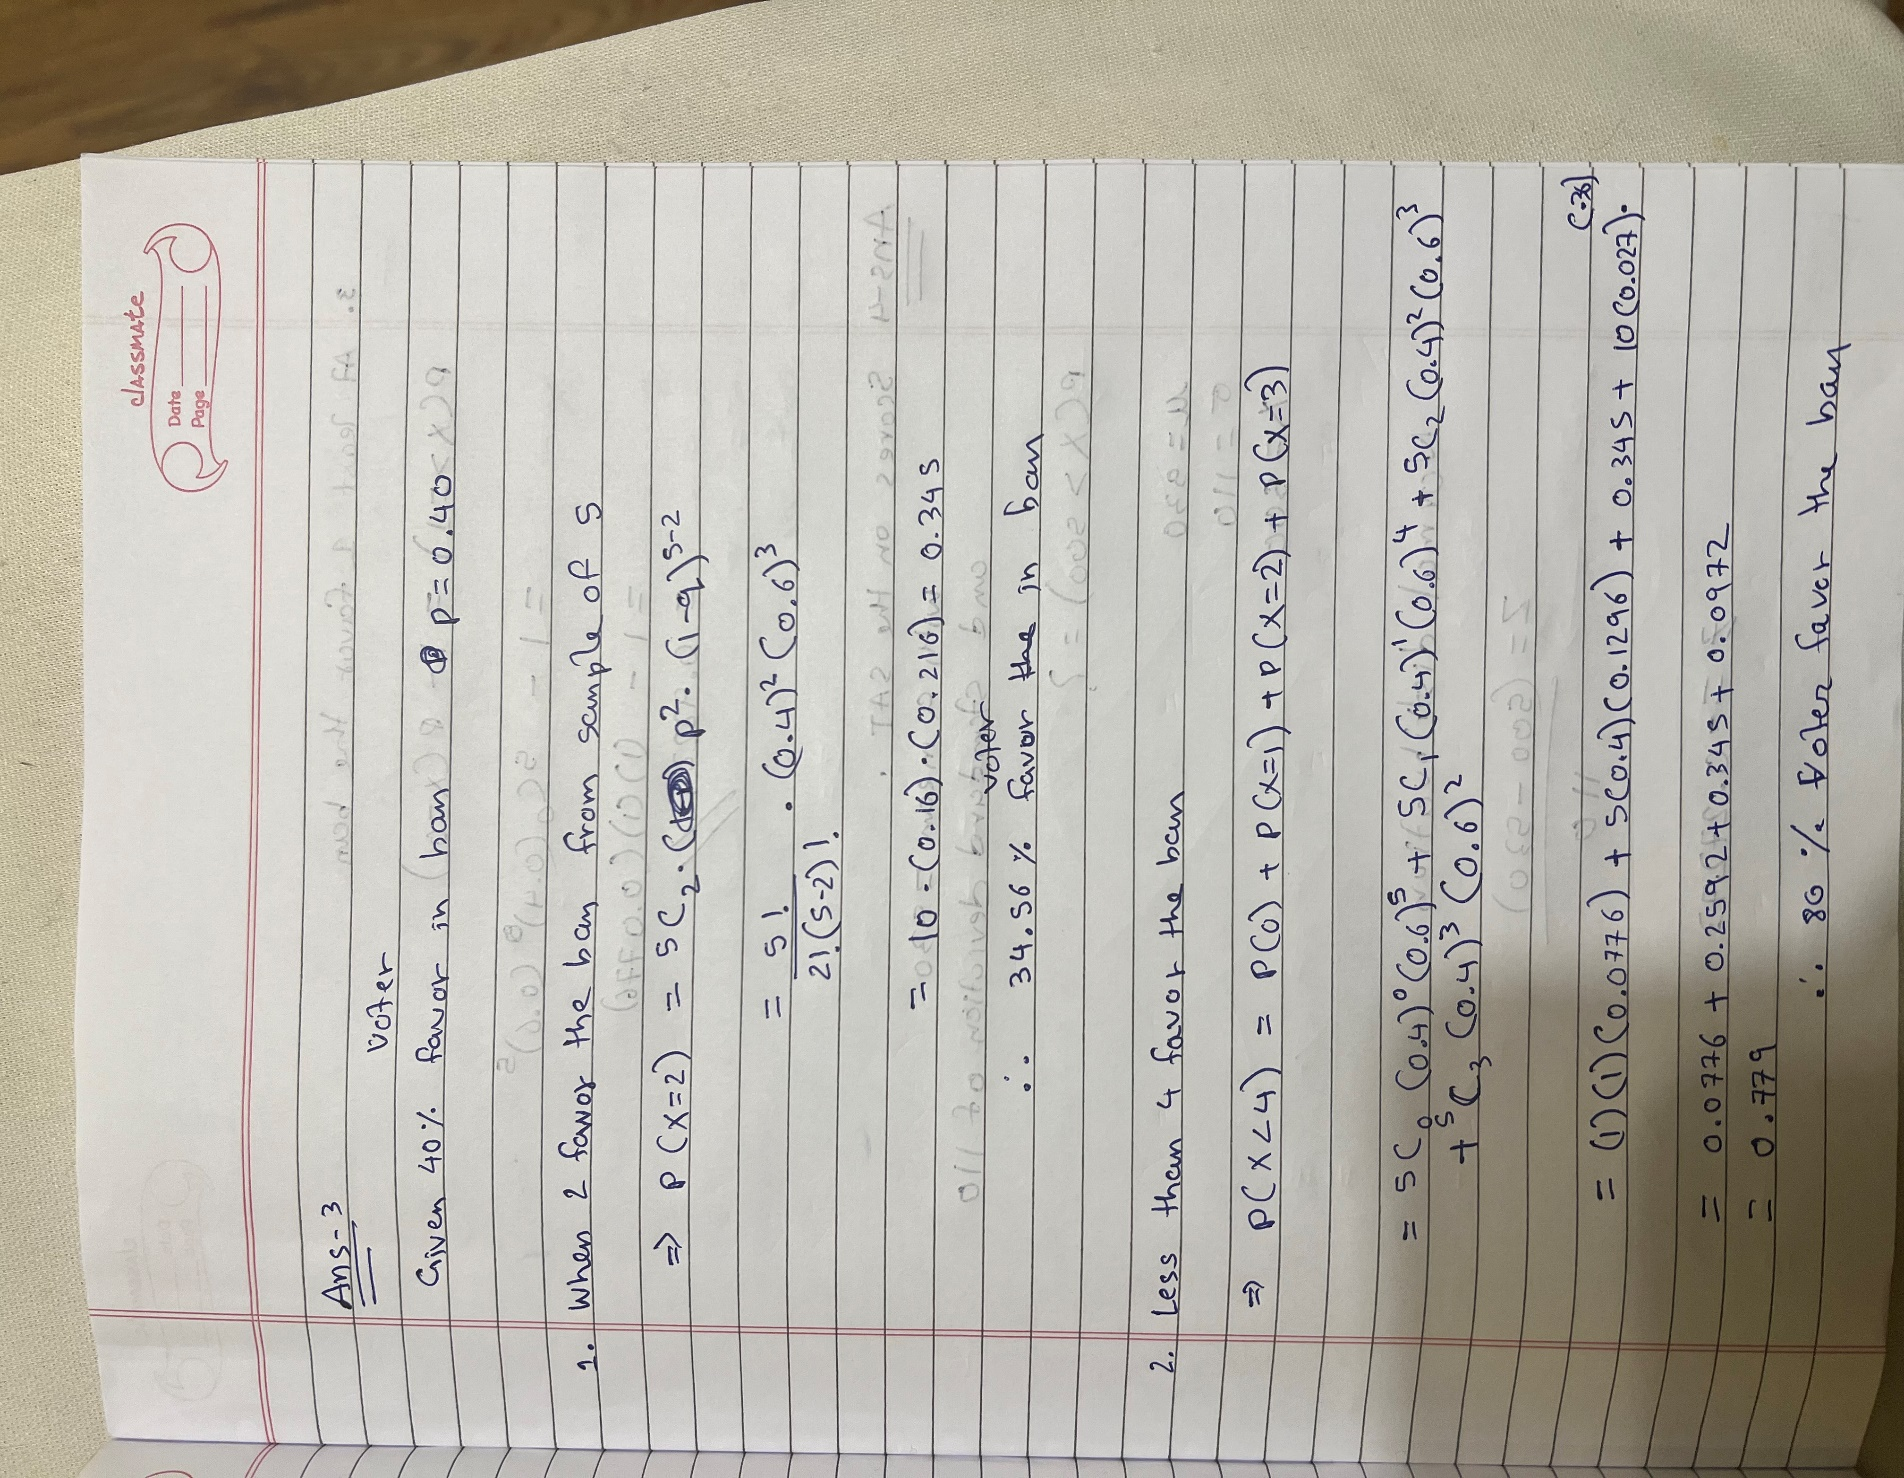 classmate
Date
Page
Ans-3
Voter
Given 40% favor in ban p = 0.40
1. When 2 favor the ban from sample of 5
⇒ P(X=2) = 5C₂ · p² · (1-q)⁵⁻²
= 5! / 2!(5-2)! · (0.4)² (0.6)³
= 10 · (0.16) · (0.216) = 0.345
voter
∴ 34.56% favor the in ban
2. Less than 4 favor the ban
⇒ P(X<4) = P(0) + P(X=1) + P(X=2) + P(X=3)
= 5C₀ (0.4)⁰ (0.6)⁵ + 5C₁ (0.4)¹ (0.6)⁴ + 5C₂ (0.4)² (0.6)³
+ ⁵C₃ (0.4)³ (0.6)²
(.36)
= (1)(1)(0.0776) + 5(0.4)(0.1296) + 0.345 + 10(0.027).
= 0.0776 + 0.2592 + 0.345 + 0.0972
= 0.779
∴ 80% Voter favor the ban